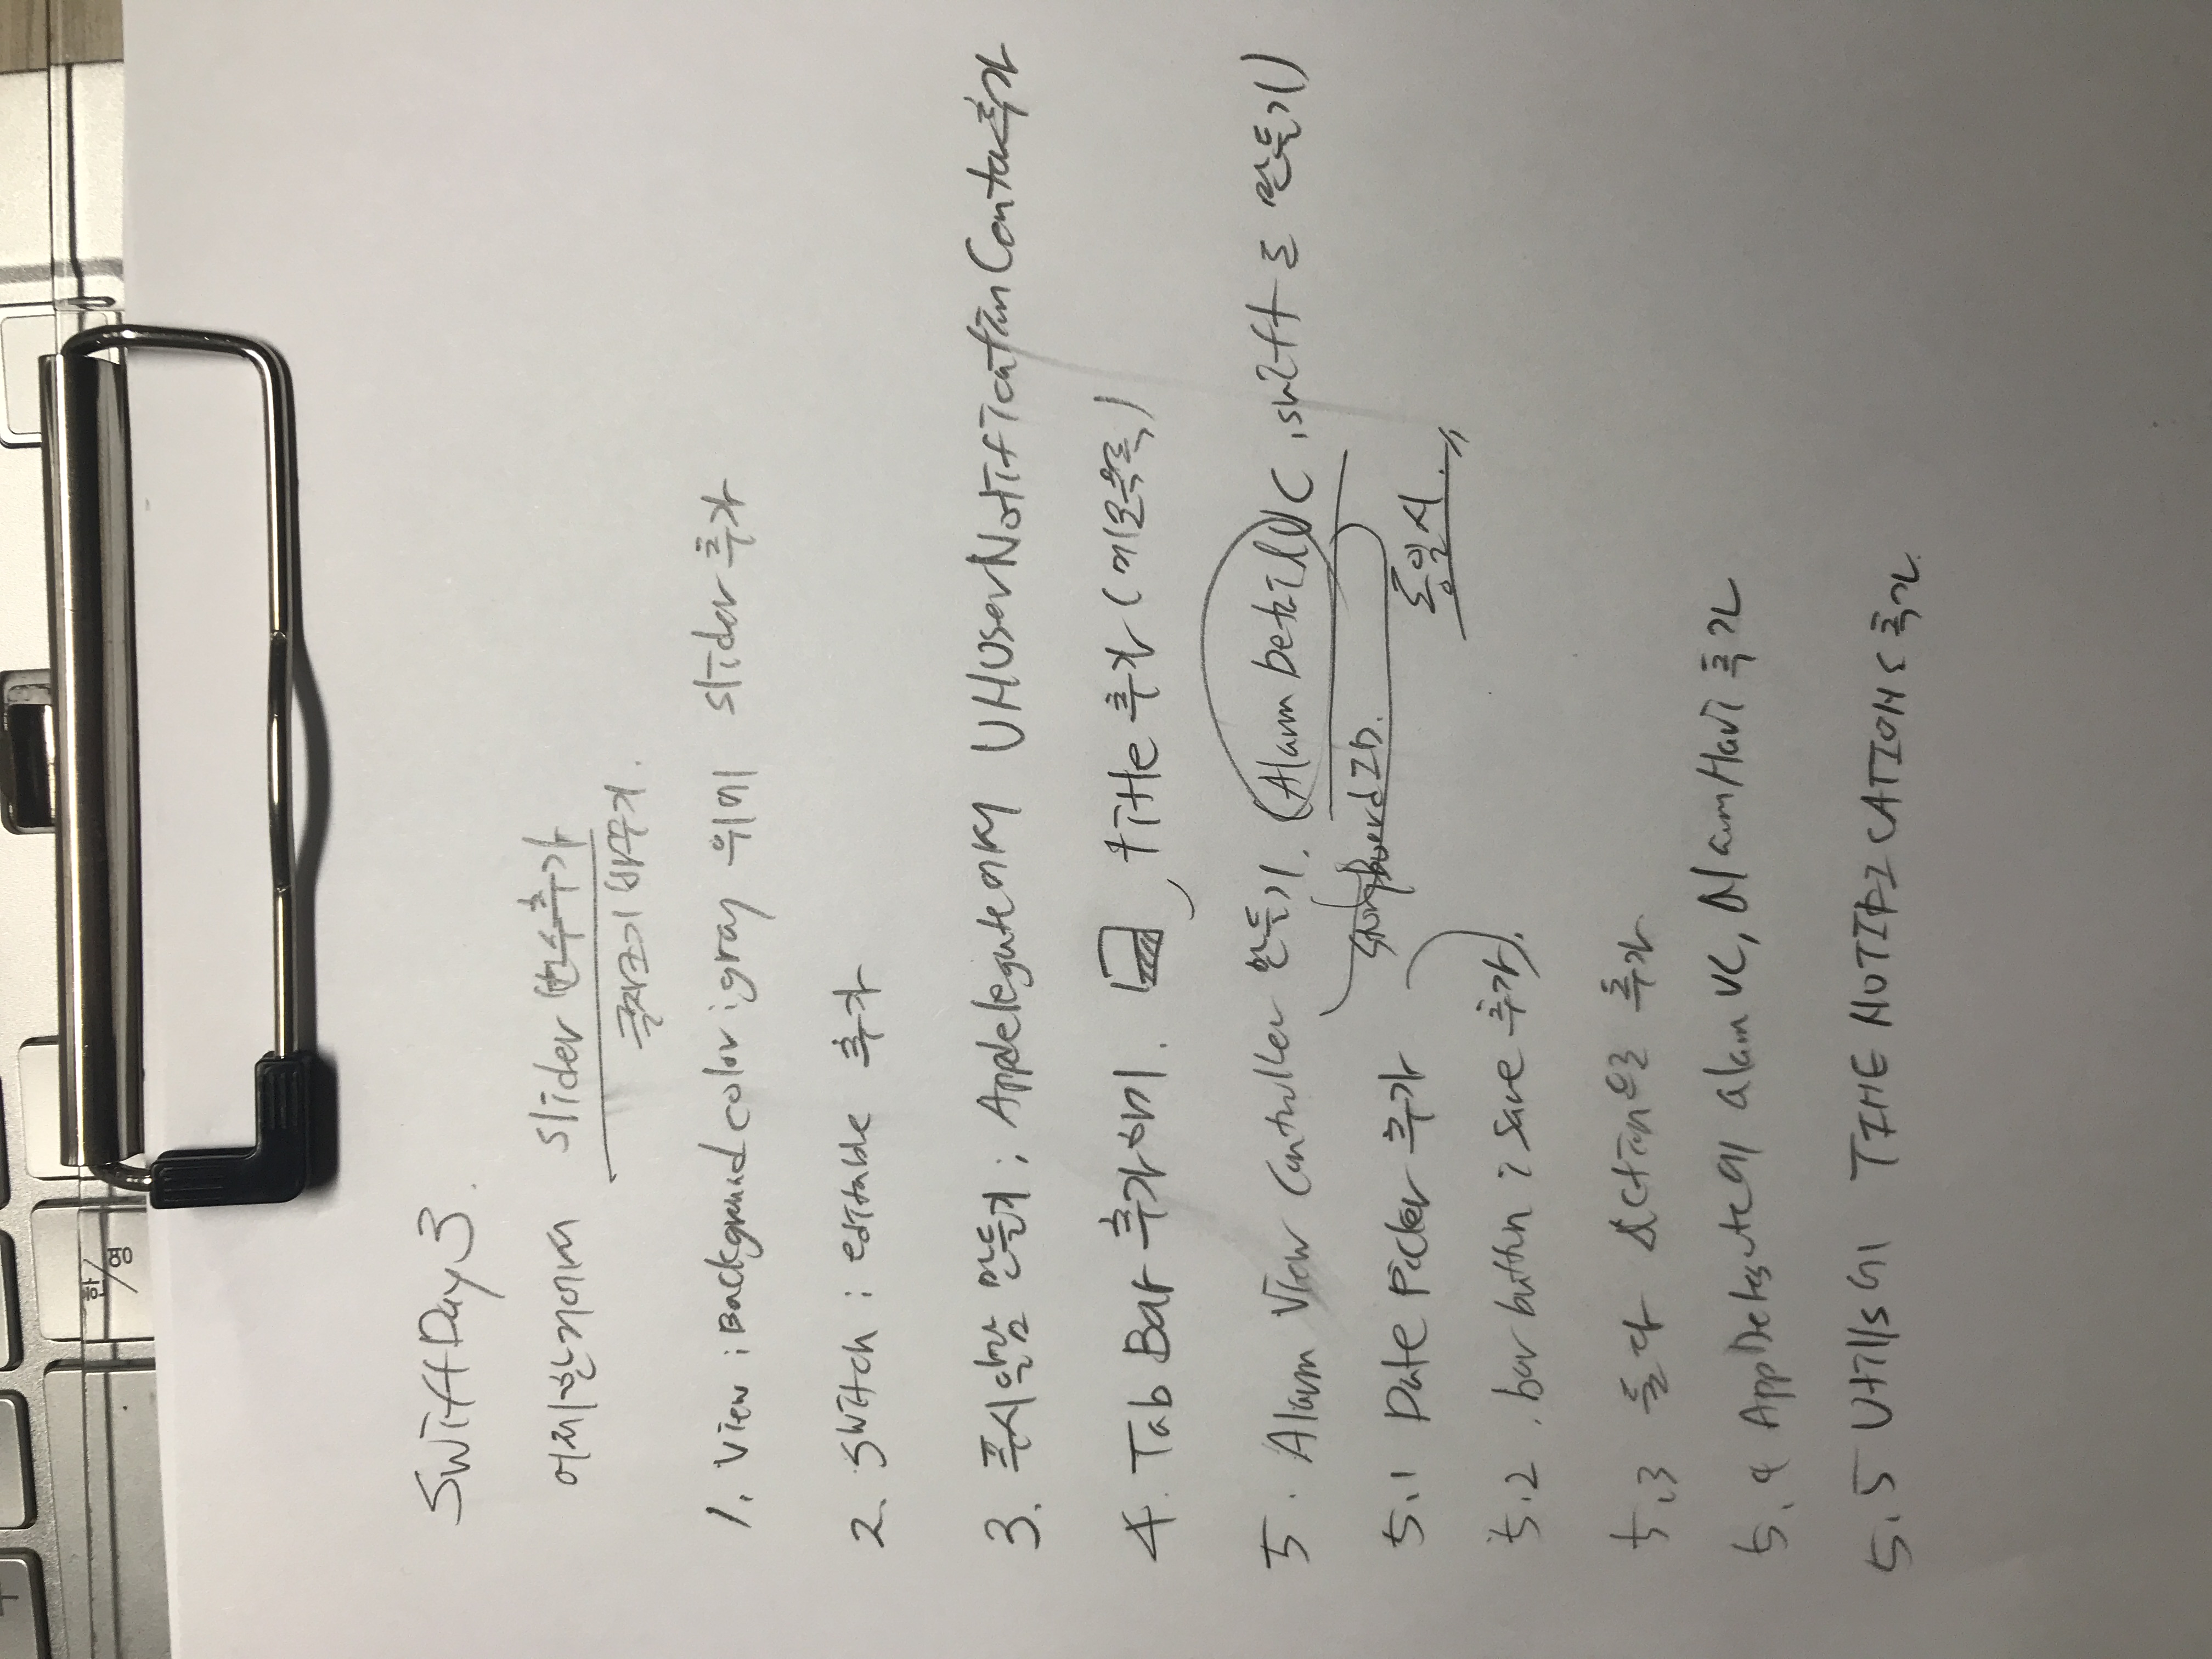 한/영
Swift Day 3.
어제한거에서 slider 변수추가
글자크기 바꾸기.
1. View : Background color : gray 위에 slider 추가
2. Switch : editable 추가
3. 푸시알람 만들기 ; Appdelegate에서 UNUserNotification 추가
4. Tab Bar 추가하기. , title 추가 (메모목록)
5. Alarm View Controller 만들기. (Alarm DetailVC .swift도 만들기)
StoryBoard ID.
동일시.
5.1 Date Picker 추가
5.2 . bar button : Save 추가).
5.3 둘다 Action으로 추가
5.4 AppDelegate에 alam VC, AlaumNavi 추가
5.5 Utills에 TIME NOTIFICATIONS 추가.